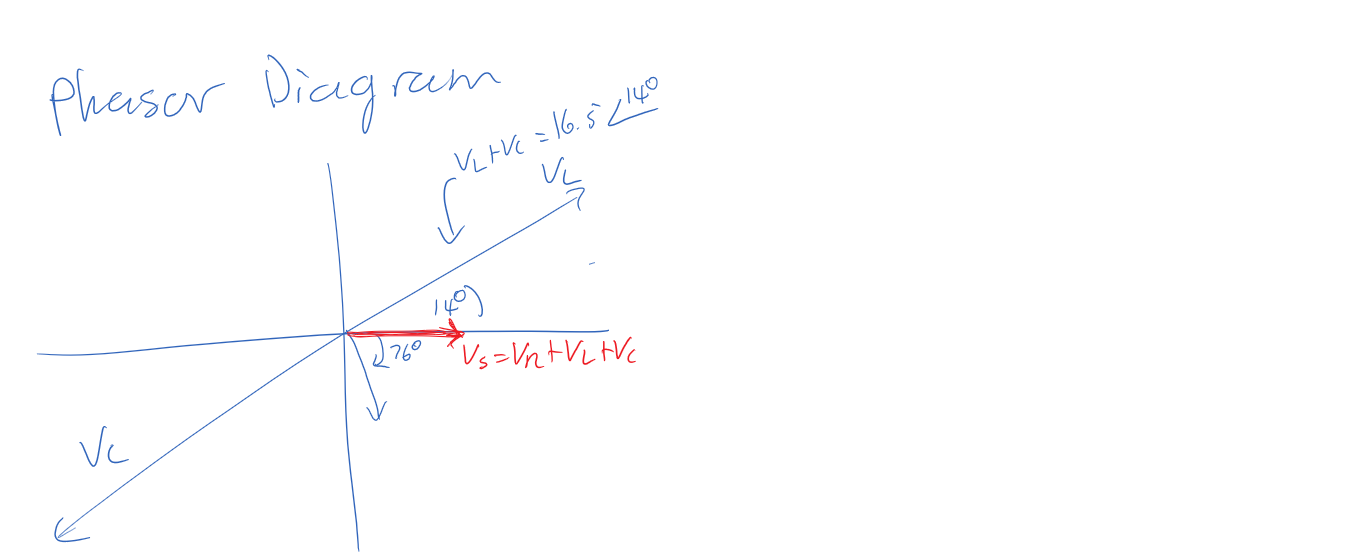 Phasor Diagram
VL+VC = 16.5∠14°
VL
14°
76°
Vs=VR+VL+VC
VC